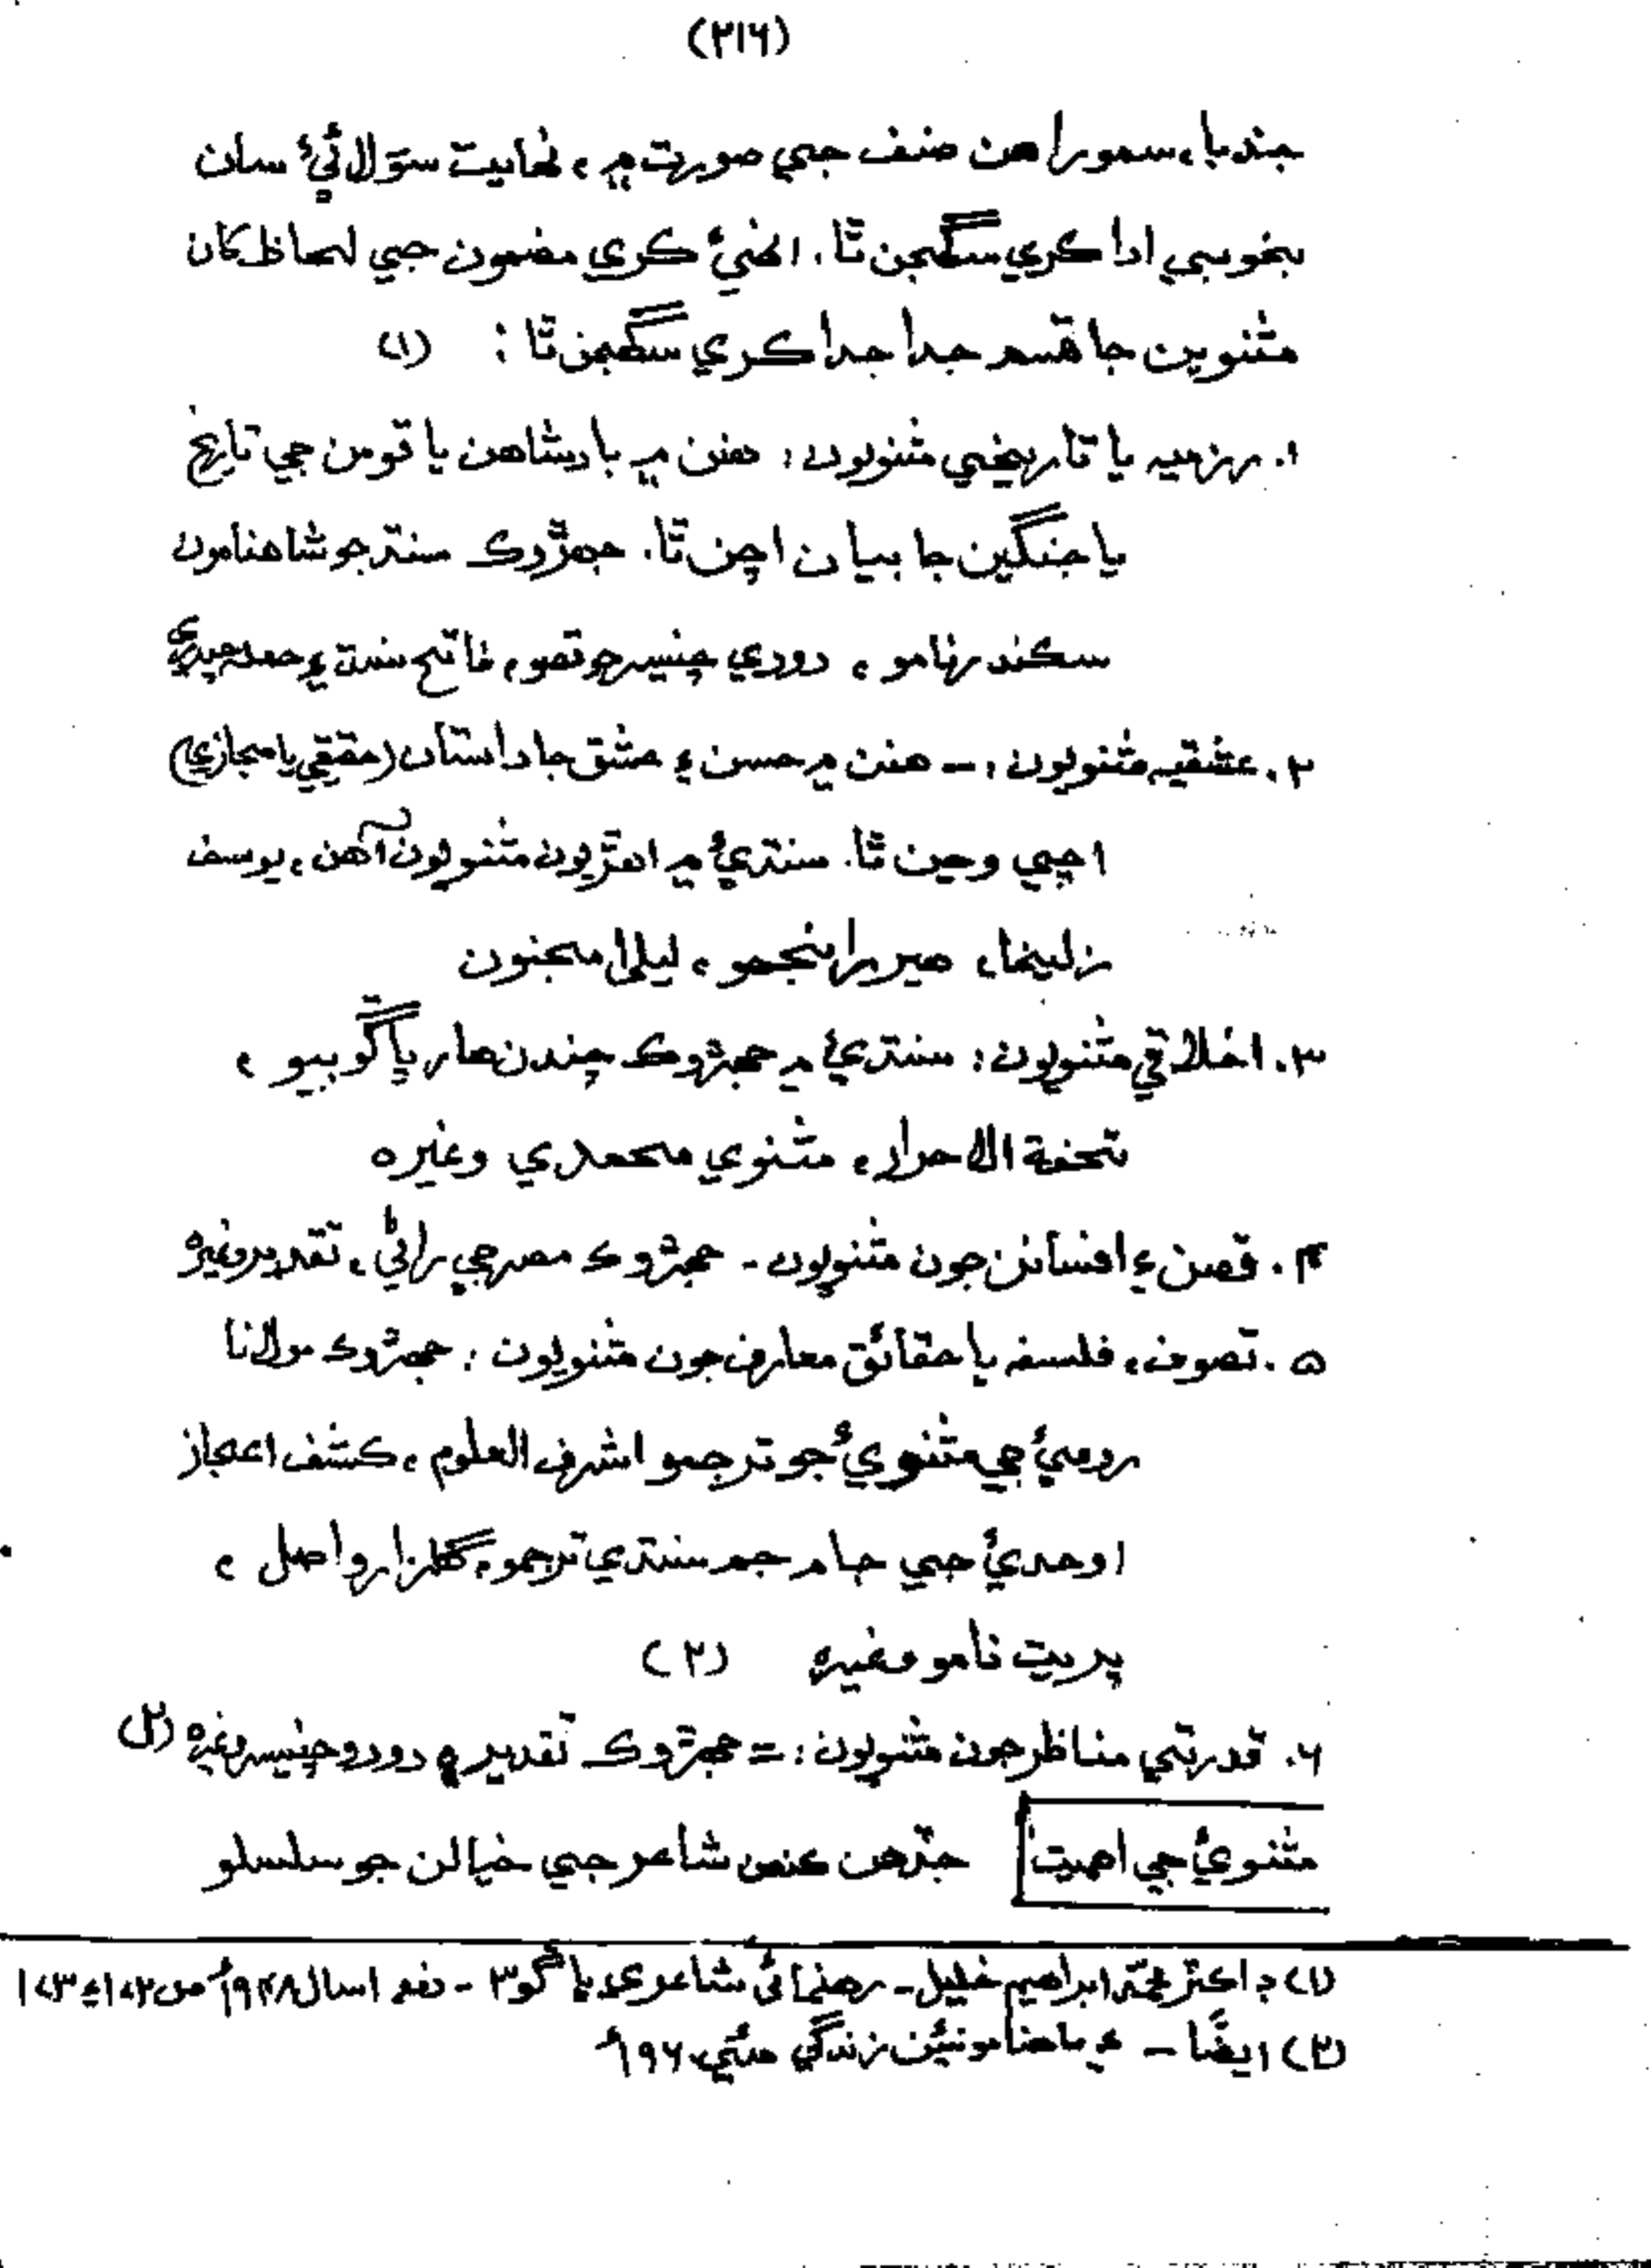 (٣١٦)
جذبا، سمورا هن صنف جي صورت ۾، نهايت سؤلائيءَ سان
بخوبي ادا ڪري سگهجن ٿا. انهيءَ ڪري مضمون جي لحاظ کان
مثنوين جا قسم جدا جدا ڪري سگهجن ٿا: (١)
١. رزميه يا تاريخي مثنويون: هنن ۾ بادشاهن يا قومن جي تاريخ
يا جنگين جا بيان اچن ٿا. جهڙوڪ سنڌ جو شاهنامون
سڪندرنامو، دودي چنيسر جو قصو، فاتح سنڌ ۽ حمله حيدري
٢. عشقيه مثنويون:- هنن ۾ حسن ۽ عشق جا داستان (حقيقي يا مجازي)
اچي وڃن ٿا. سنڌيءَ ۾ اهڙيون مثنويون آهن، يوسف
زليخا، هير رانجهو، ليليٰ مجنون
٣. اخلاقي مثنويون: سنڌيءَ ۾ جهڙوڪ چندن هار ڀاڱو ٻيو،
تحفة الاحرار، مثنوي محمدي وغيره
٤. قصن ۽ افسانن جون مثنويون- جهڙوڪ مصر جي راڻي، تقدير وغيره
٥. تصوف، فلسفه يا حقائق معارف جون مثنويون: جهڙوڪ مولانا
روميءَ جي مثنويءَ جو ترجمو اشرف العلوم، ڪشف اعجاز
اوحديءَ جي جام جم سنڌي ترجمو، گلزار واصل،
پريت نامو وغيره (٢)
٦. قدرتي مناظر جون مثنويون:= جهڙوڪ تقدير ۽ دودو چنيسر وغيره (٢)
مثنويءَ جي اهميت جڏهن ڪنهن شاعر جي خيالن جو سلسلو
(١) ڊاڪٽر محمد ابراهيم خليل- رهنمائي شاعري ڀاڱو ٣ - دفعو اسال ١٩٤٨ع ص
(٢) ايضًا - ۽ ماهنامو نئين زندگي مئي